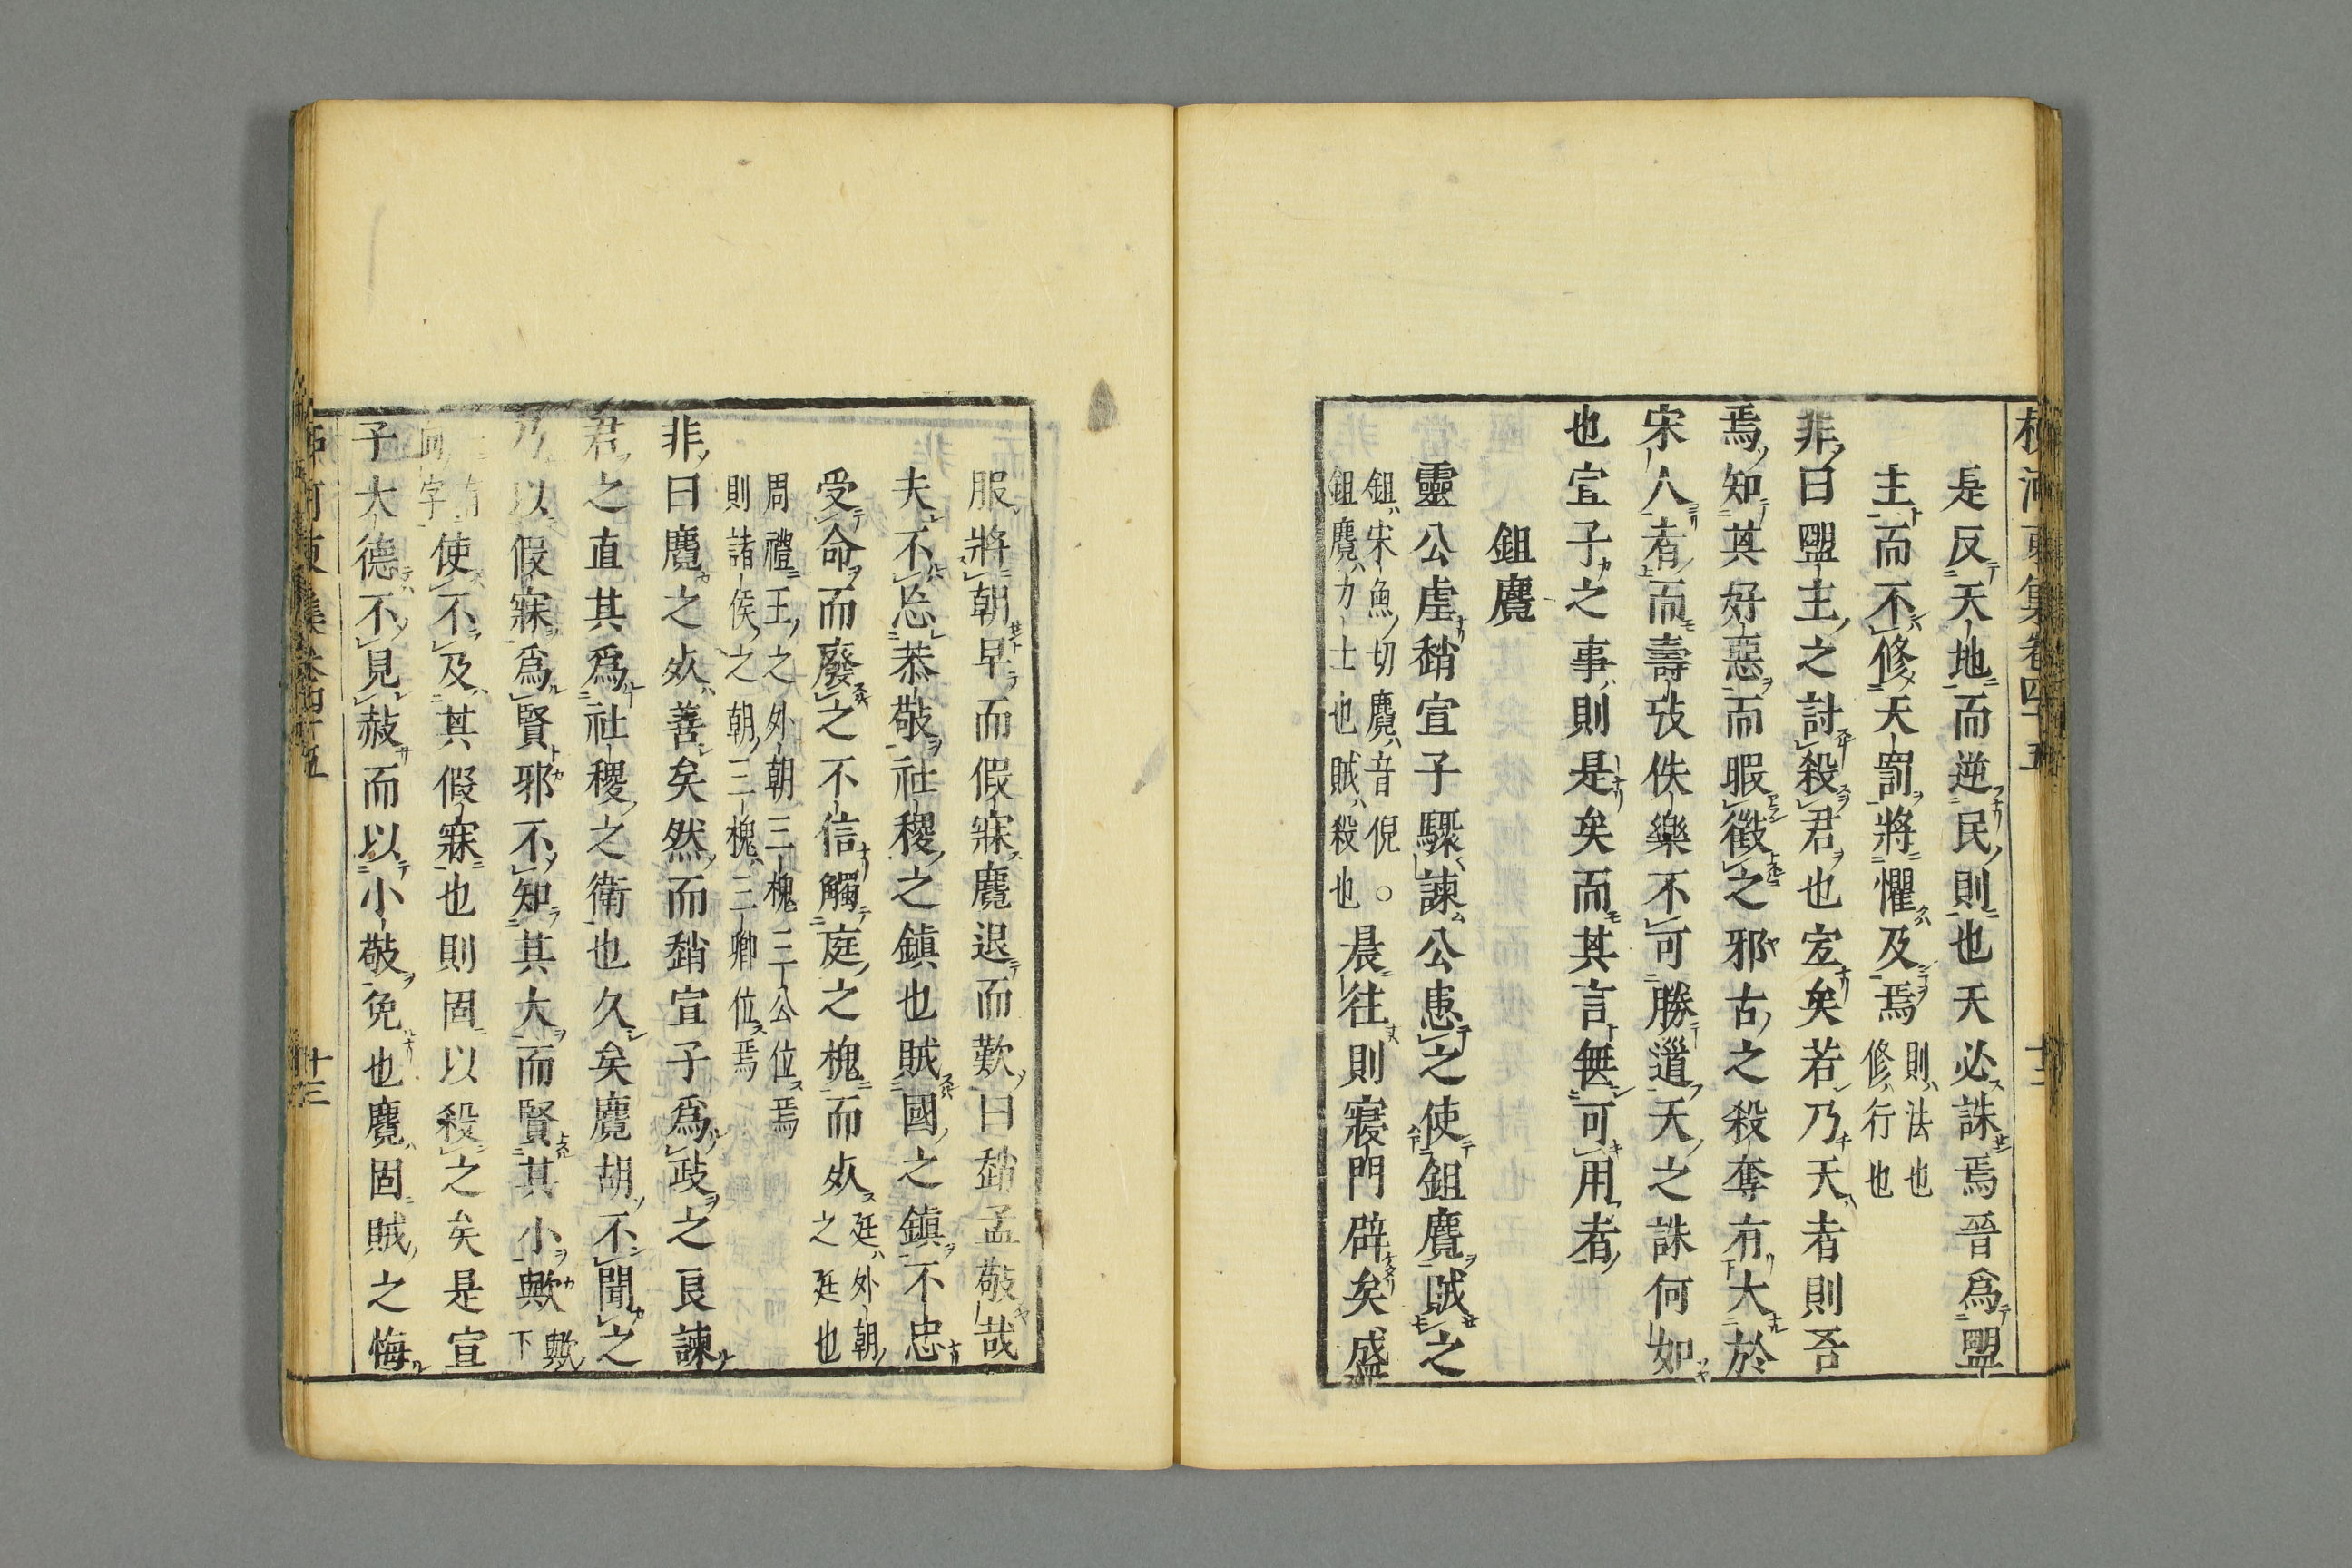 是反天地而逆民則也天必誅焉晉為盟
主而不修天罰將懼及焉
則法也
修行也
非曰盟主之討殺君也宜矣若乃天者則吾
焉知其好惡而暇徵之邪古之殺奪有大於
宋人者而壽攷佚樂不可勝道天之誅何如
也宣子之事則是矣而其言無可用者
鉏麑
靈公虐趙宣子驟諫公患之使鉏麑賊之
鉏宋魚切麑音倪○
鉏麑力士也賊殺也
晨往則寢門辟矣盛
服將朝早而假寐麑退而歎曰趙孟敬哉
夫不忘恭敬社稷之鎮也賊國之鎮不忠
受命而廢之不信觸庭之槐而死
廷外朝
之廷也
周禮王之外朝三槐三公位焉
則諸侯之朝三槐三卿位焉
非曰麑之死善矣然而趙宣子為政之良諫
君之直其為社稷之衛也久矣麑胡不聞之
乃以假寐為賢邪不知其大而賢其小歟
歟
下
有
字
使不及其假寐也則固以殺之矣是宣
子大德不見赦而以小敬免也麑固賊之悔
河東集卷四十五
十三